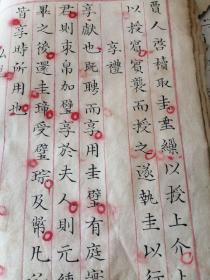 賈人啓櫝取圭垂繅以授上介上
以授賓賓襲而授之遂執圭以行
享禮
享獻也既聘而享用圭璧有庭實
君則束帛加璧享於夫人則元纁
畢之後還圭璋受璧琮及幣凡
皆享時所用也